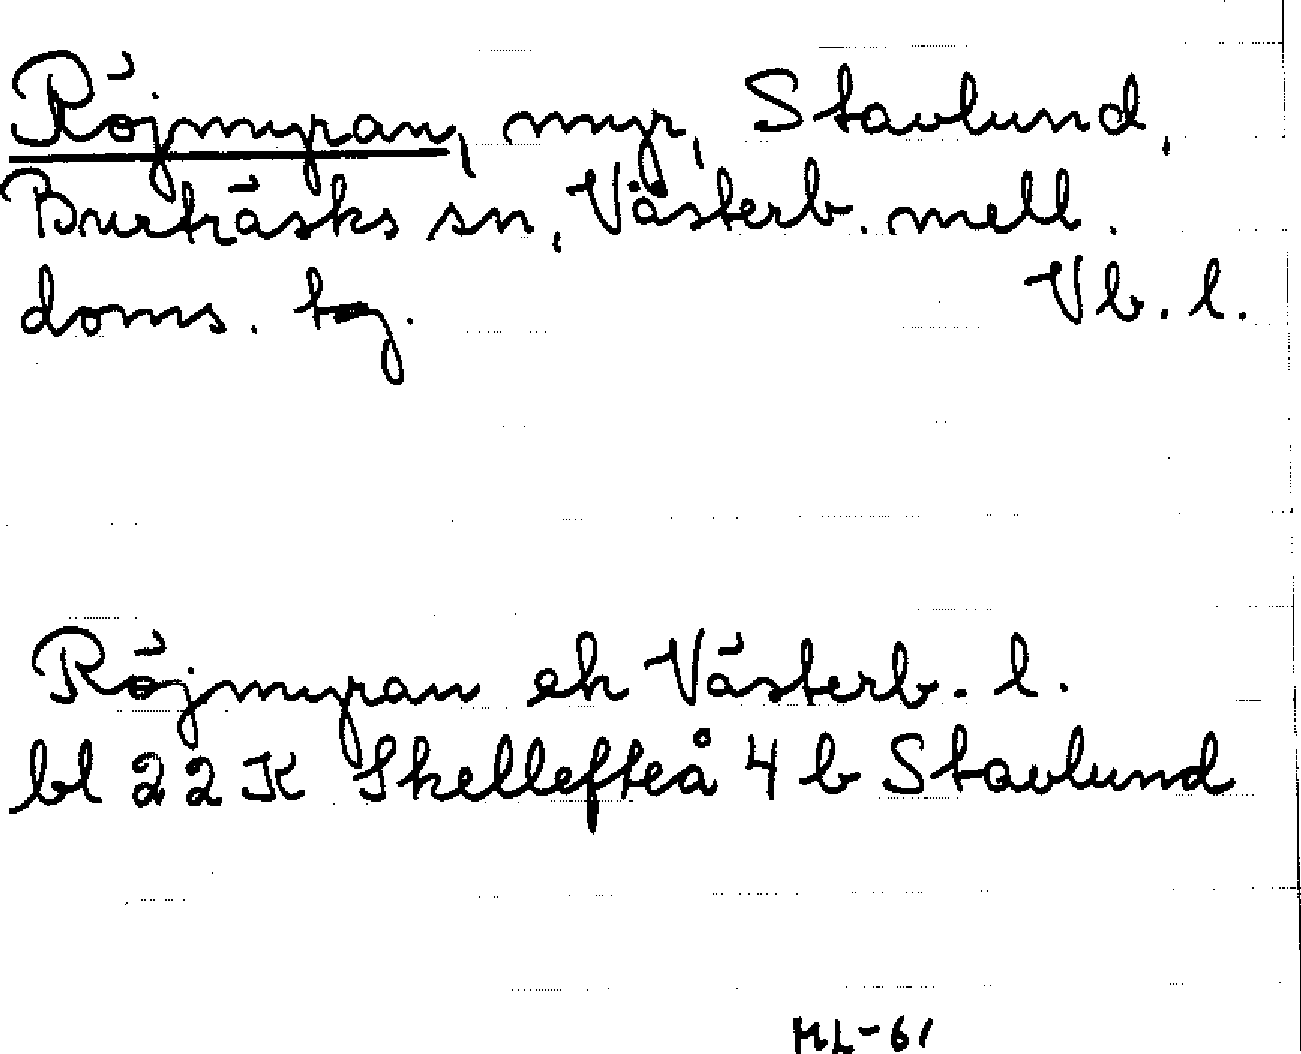 Röjmyran, myr, Stavlund,
Burträsks sn, Västerb. mell.
doms. tg. Vb. l.
Röjmyran ek Västerb. l.
bl 22 K Skellefteå 4 b Stavlund
ML-61